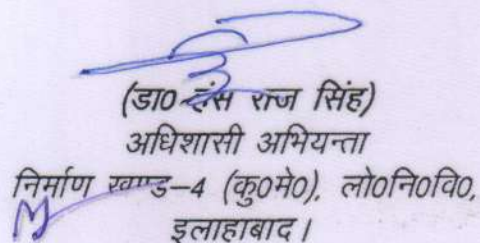 (डा0 हंस राज सिंह)
अधिशासी अभियन्ता
निर्माण खण्ड-4 (कु0मे0), लो0नि0वि0,
इलाहाबाद।